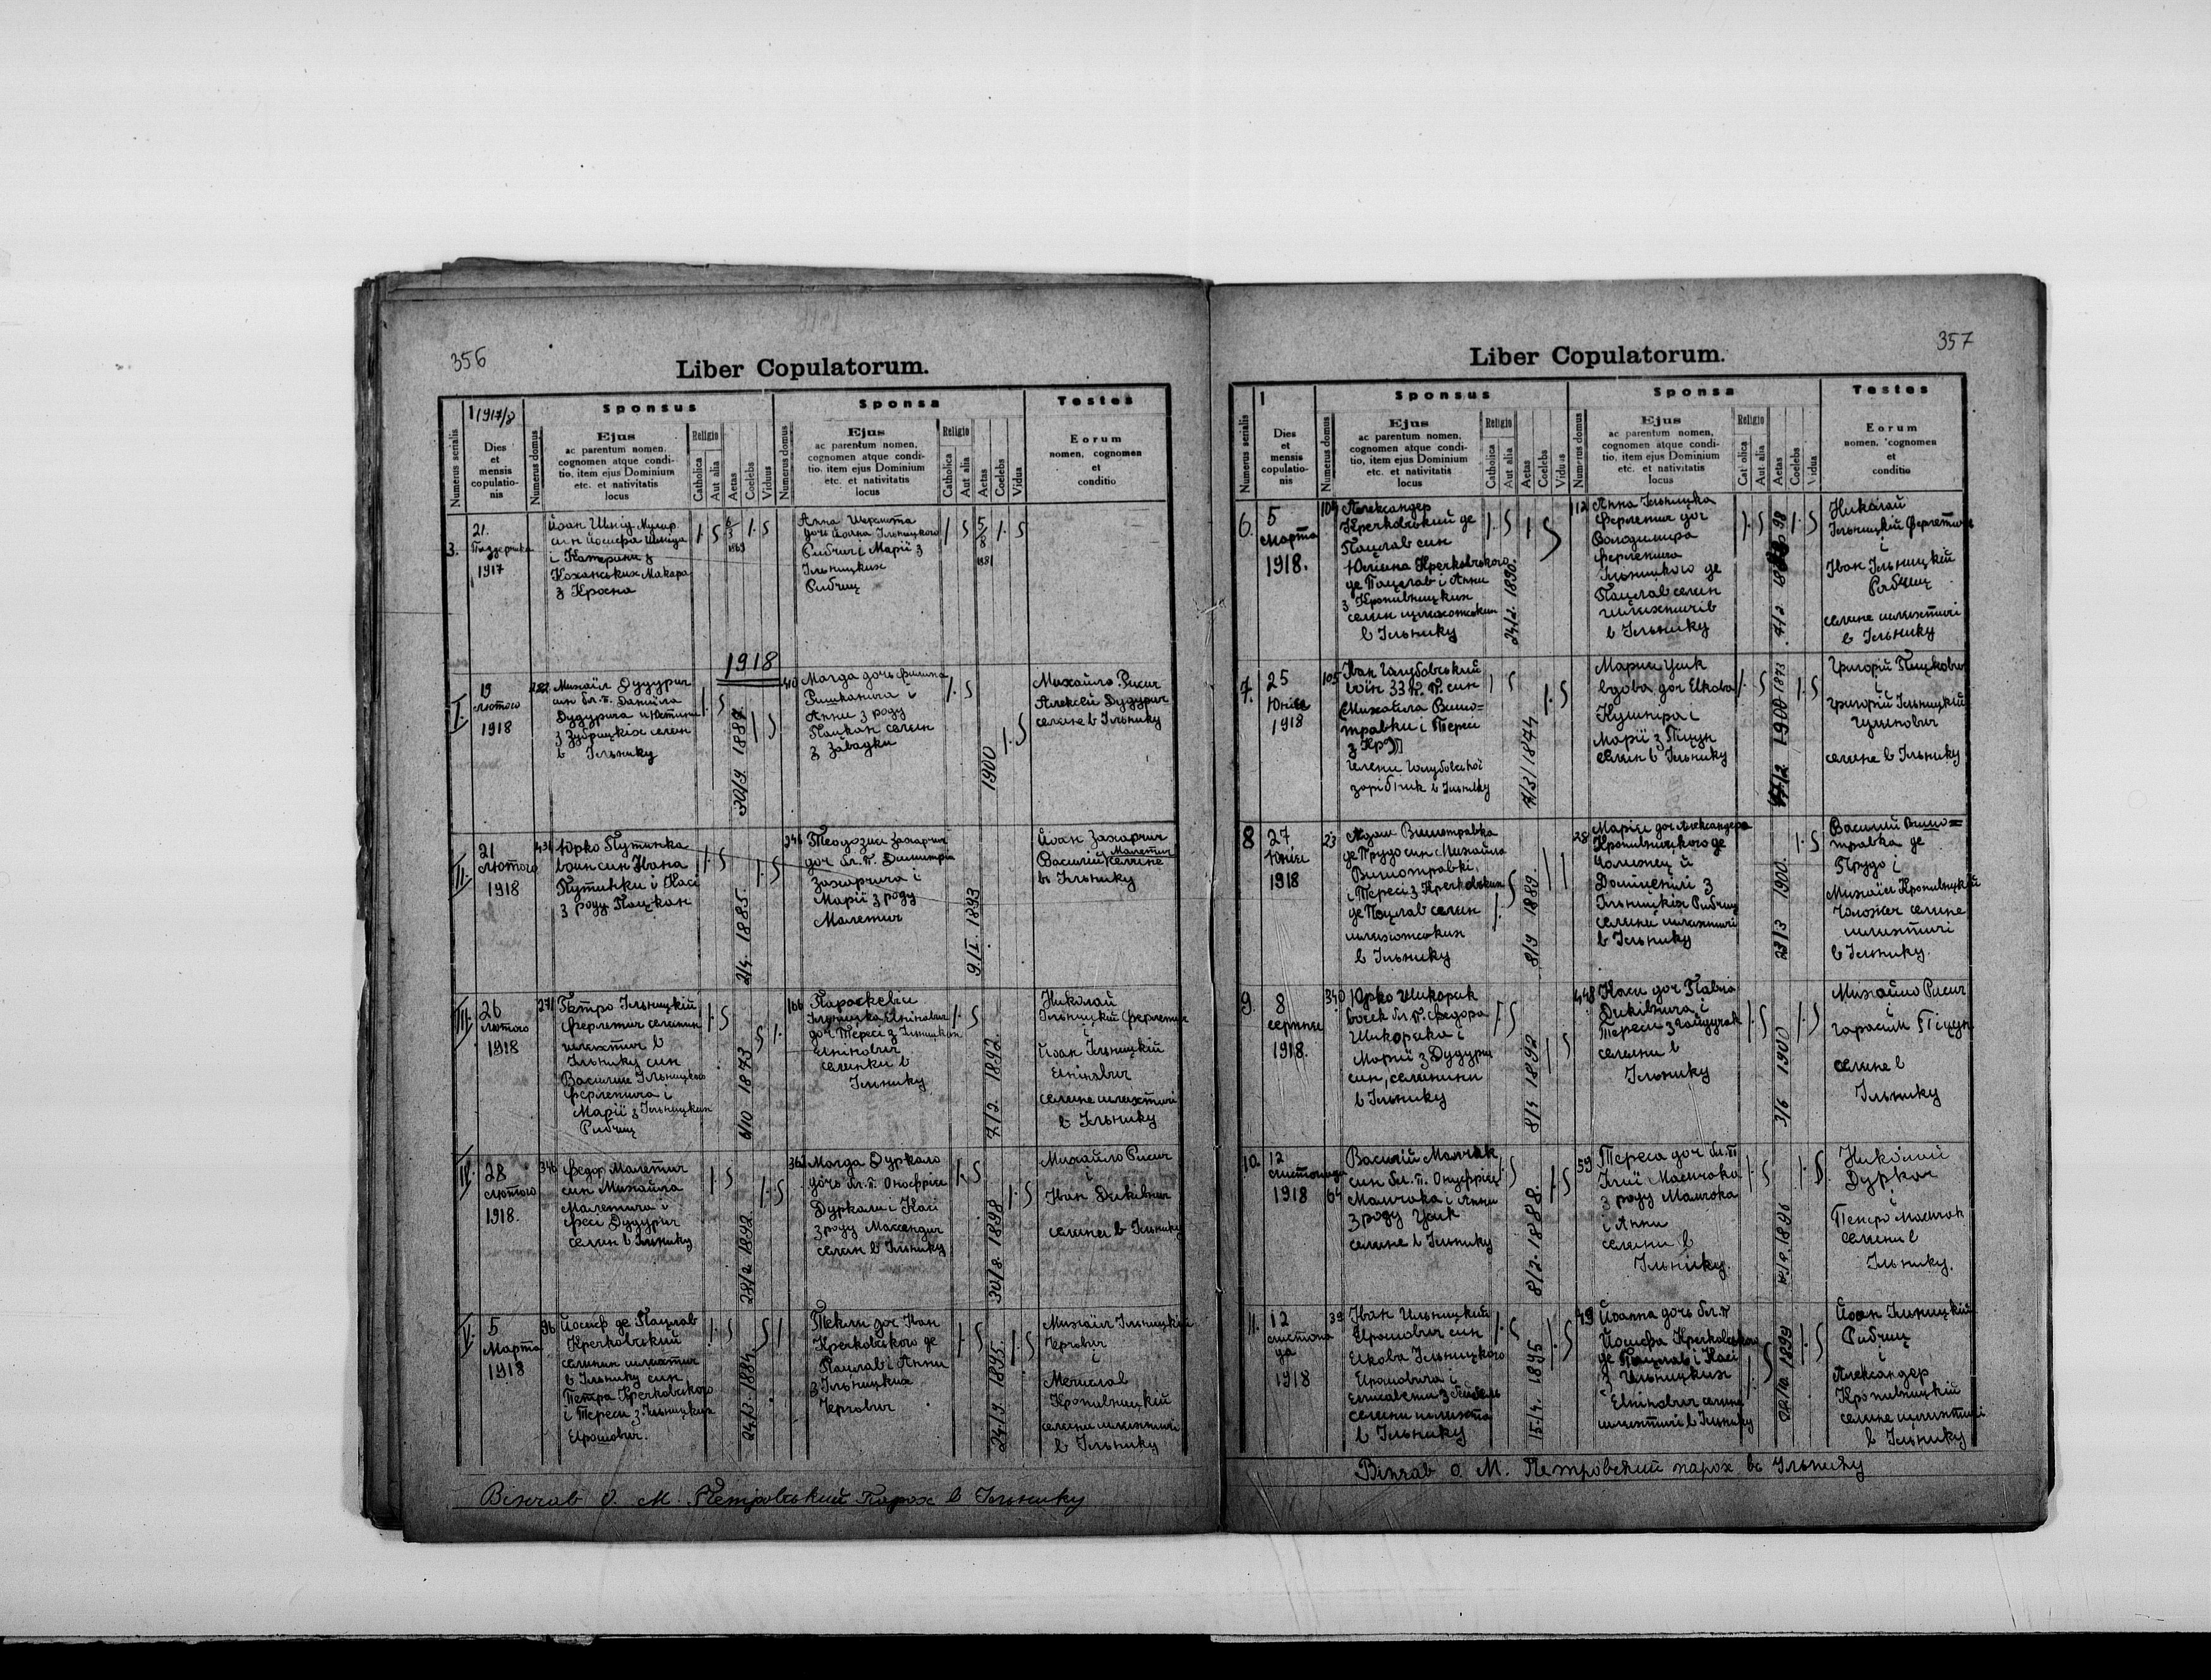 356
Liber Copulatorum.
1917/8
Numerus serialis
Dies
et
mensis
copulatio-
nis
Sponsus
Numerus domus
Ejus
ac parentum nomen,
cognomen atque condi-
tio, item ejus Dominium
etc. et nativitatis
locus
Religio
Catholica
Aut alia
Aetas
Coelebs
Viduus
Sponsa
Numerus domus
Ejus
ac parentum nomen,
cognomen atque condi-
tio, item ejus Dominium
etc. et nativitatis
locus
Religio
Catholica
Aut alia
Aetas
Coelebs
Vidua
Testes
Eorum
nomen, cognomen
et
conditio
3.
21.
1917
син Йосифа
і Катерини з
Коханських Макара
з Кросна
Анна
дочь Йоана Ільницкого
Рибчич і Марії з
Ільницких
Рибчич
1918
I.
19
лютого
1918
222
Михаіл Дудурич
син бл. п. Даниіла
Дудурича и
з Зубрицкіх селян
в Ільнику
30/9 1887
Магда дочь Филипа
Анни з роду
Пацкан селян
з Завадки
1900
Михайло Рисич
Алексей Дудурич
селяне в Ільнику
II.
21
лютого
1918
431
Юрко Путинка
воін син Івана
Путинки і Касі
з роду Пацкан
2/4. 1885.
246
Теодозия Захарчич
доч бл. п. Димитрія
Захарчича і
Марії з роду
Малетич
9/I. 1893
Йоан Захарчич
Василий Малетич
селяне
в Ільнику
III.
26
лютого
1918
271
Петро Ільницкій
Ферлетич селянин
шляхтич в
Ільнику син
Василия Ільницкого
Ферлетича і
Марії з Ільницких
Рибчич
6/10 1873
166
Параскевія
доч Тереси з Ільницких
селянки в
Ільнику
7/2. 1892.
Николай
Ільницкий Ферлетич
і
Йоан Ільницкій
селяне шляхтичі
в Ільнику
IV.
28
лютого
1918.
346
Федор Малетич
син Михайла
Малетича і
Фесі Дудурич
селян в Ільнику
28/2 1892.
362
Магда Дуркало
дочь бл. п. Онофрія
Дуркали і Касі
з роду
селян в Ільнику
30/8. 1898
Михайло Рисич
і
Іван Дикевич
селяне в Ільнику
V.
5
Марта
1918
96
Йосиф де Пацлав
Кречковский
селянин шляхтич
в Ільнику син
Петра Кречковского
і Тереси з Ільницких
24/3. 1884.
Текля доч Іван
Кречковского де
Пацлав і Анни
з Ільницких
24/9. 1895.
Михаіл Ільницкій
і
Мечислав
Кропивницкій
селяне шляхтичі
в Ільнику
Вінчав о. М. Петровський Парох в Ільнику
357
Liber Copulatorum.
1
Numerus serialis
Dies
et
mensis
copulatio-
nis
Sponsus
Numerus domus
Ejus
ac parentum nomen,
cognomen atque condi-
tio, item ejus Dominium
etc. et nativitatis
locus
Religio
Catholica
Aut alia
Aetas
Coelebs
Viduus
Sponsa
Numerus domus
Ejus
ac parentum nomen,
cognomen atque condi-
tio, item ejus Dominium
etc. et nativitatis
locus
Religio
Catholica
Aut alia
Aetas
Coelebs
Vidua
Testes
Eorum
nomen, cognomen
et
conditio
6.
5
Марта
1918.
104
Александер
Кречковський де
Пацлав син
Юлияна Кречковского
де Пацлав і Анни
з Кропивницких
селян шляхотских
в Ільнику
24/2. 1890.
112
Анна Ільницка
Ферлетич доч
Володимира
Ферлетича
Ільницкого де
Пацлав селян
шляхтичів
в Ільнику
Николай
Ільницкій Ферлетич
і
Іван Ільницкій
Рибчич
селяне шляхтичі
в Ільнику
7.
25
Юнія
1918
105
Іван Голубовський
воін 33 п. п. син
Михайла Вишо-
травки і Тересі
Голубовскої
зарібник в Ільнику
7/3/1874
Мария Цик
вдова доч
Кушніра і
Марії з Тіцун
селян в Ільнику
Григорій
і
Григорій Ільницкій
селяне в Ільнику
8
27
Юнія
1918
23
Адам Вишотравка
де Прудо син Михайла
Вишотравкі,
і Тересі з Кречковских
де Пацлав селян
шляхотских
в Ільнику
8/9 1889.
28
Марія доч Александера
Кропивницкого де
й
Домицелії з
Ільницкіх Рибчич
селяни шляхтичі
в Ільнику
23/3 1900.
Василий Вишо=
травка де
Прудо і
Михаіл Кропивницкій
селяне
шляхтичі
в Ільнику.
9.
8
серпня
1918.
340
Юрко Шикорак
воєк бл. п. Федора
Шикорака і
Марії з Дудурич
син, селянин
в Ільнику
8/4 1892
448
Кася доч Павла
Дикевича і
Тереси з
селяни в
Ільнику
3/6 1900
Михайло Рисич
і
Гарасим Тіцун
селяне в
Ільнику
10.
12
листопада
1918
64
Василій Малчак
син бл. п. Онуфрія
Малчака і Анни
з роду Цик
селяне в Ільнику
8/2. 1888.
59
Тереса доч бл. п
Ілії Малчака
з роду Малчака
і Анни
селяни в
Ільнику.
1896
Николай
Дуркач
і
Петро Малчак
селяни в
Ільнику.
11.
12
листопа
да
1918
39
Іван Ільницкий
син
Ількова Ільницкого
і
Елисавети з
селяни шляхта
в Ільнику
15/4. 1895
49
Йоанна дочь бл. п
Йосифа Кречковского
де Пацлав і Касі
з Ільницких
селяне
шляхтичі в Ільнику
1899
Йоан Ільницкий
Рибчич
і
Александер
Кропивницкій
селяне шляхтичі
в Ільнику
Вінчав о. М. Петровский парох въ Ільнику